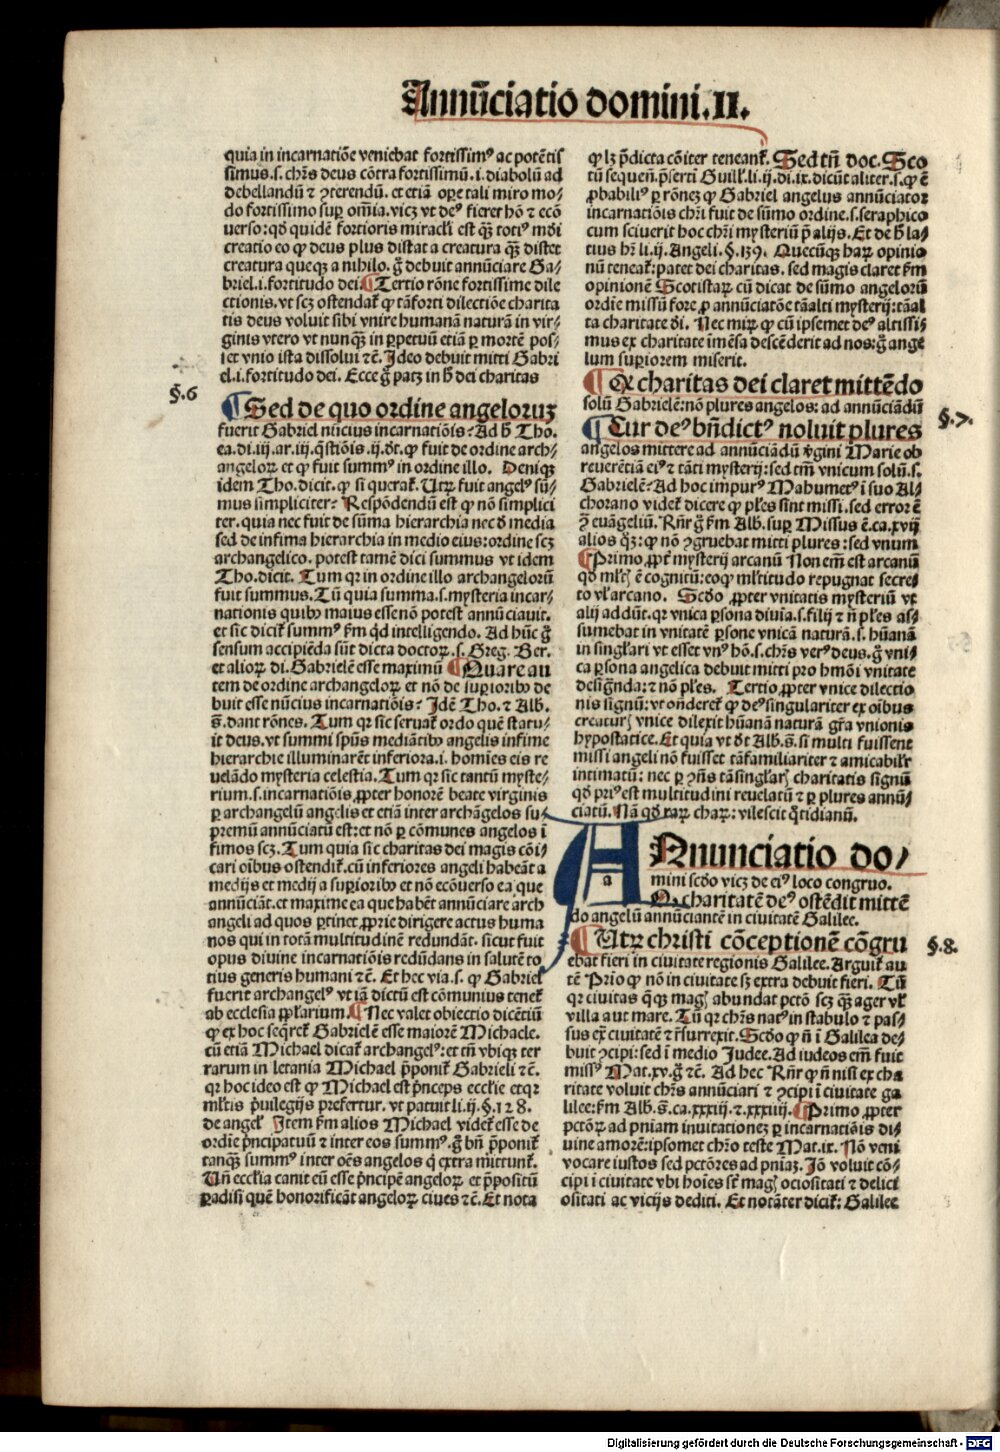 Annūciatio domini.II.
quia in incarnatiōe veniebat fortissimꝰ ac potētis
simus.s. chrꝰs deus cōtra fortissimū.i. diabolū ad
debellandū ⁊ ꝯterendū. et etiā oꝑe tali miro mo-
do fortissimo suꝑ om̄ia. vicꝫ vt deꝰ fieret hō ⁊ ecō
uerso: qd̛ quidē fortioris miracl̓i est qꝫ̄ totiꝰ mūdi
creatio eo ꝙ deus plus distat a creatura qꝫ̄ distet
creatura quecꝫ a nihilo. ḡ debuit annūciare Ga-
briel.i. fortitudo dei. ¶ Tertio rōne fortissime dile
ctionis. vt scꝫ ostendat̄ ꝙ tāforti dilectiōe charita
tis deus voluit sibi vnire humanā naturā in vir-
ginis vtero vt nunqꝫ̄ in ꝑpetuū etiā ꝑ mortē pos-
set vnio ista dissolui ⁊c̄. Ideo debuit mitti Gabri
el.i. fortitudo dei. Ecce ḡ patꝫ in h̄ dei charitas
§.6
¶ Sed de quo ordine angeloruꝫ
fuerit Gabriel nūcius incarnatiōis? Ad h̄ Tho.
ea.di.iij.ar.iij.q̄stiōis.ij.dt̄. ꝙ fuit de ordine arch-
angeloꝝ et ꝙ fuit summꝰ in ordine illo. Deniqꝫ
idem Tho. dicit. ꝙ si querat̄. Utꝝ fuit angelꝰ sū-
mus simpliciter? Respōdendū est ꝙ nō simplici
ter. quia nec fuit de sūma hierarchia nec d̛ media
sed de infima hierarchia in medio eius: ordine scꝫ
archangelico. potest tamē dici summus vt idem
Tho. dicit. Tum qꝛ in ordine illo archangelorū
fuit summus. Tū quia summa.s. mysteria incar-
nationis quibꝰ maius esse nō potest annūciauit.
et sic dicit̄ summꝰ ẜm qd̛ intelligendo. Ad hūc ḡ
sensum accipiēda sūt dicta doctoꝝ.s. Greg. Ber.
et alioꝝ di. Gabrielē esse maximū ¶ Quare au
tem de ordine archangeloꝝ et nō de superioribꝰ de
buit esse nūcius incarnatiōis? Idē Tho. ⁊ Alb.
s̄. dant rōnes. Tum qꝛ sic seruat̄ ordo quē statu-
it deus. vt summi spūs mediātibꝰ angelis infime
hierarchie illuminarēt inferiora.i. homīes eis re
uelādo mysteria celestia. Tum qꝛ sic tantū myste-
rium.s. incarnatiōis ꝓpter honorē beate virginis
ꝑ archangelū angelis et etiā inter archāgelos su-
premū annūciatū est: et nō ꝑ cōmunes angelos ī
fimos scꝫ. Tum quia sic charitas dei magis cōi-
cari oībus ostendit̄. cū inferiores angeli habeāt a
medijs et medij a superioribꝰ et nō ecōuerso ea que
annūciāt. et maxime ea que habēt annūciare arch
angeli ad quos ꝑtinet ꝓprie dirigere actus huma
nos qui in totā multitudinē redundāt. sicut fuit
opus diuine incarnatiōis redūdans in salutē to
tius generis humani ⁊c̄. Et hec via.s. ꝙ Gabriel
fuerit archangelꝰ vt iā dictū est cōmunius tenet̄
ab ecclesia ꝑpl̄arium. ¶ Nec valet obiectio dicētiū
ꝙ ex hoc seq̄ret̄ Gabrielē esse maiorē Michaele.
cū etiā Michael dicat̄ archangelꝰ: et tn̄ vbiqꝫ ter
rarum in letania Michael p̄ponit̄ Gabrieli ⁊c̄.
qꝛ hoc ideo est ꝙ Michael est p̄nceps eccl̓ie etqꝛ
ml̓tis p̄uilegijs prefertur. vt patuit li.ij.§.128.
de angel̓. Item ẜm alios Michael videt̄ esse de
ordīe p̄ncipatuū ⁊ inter eos summꝰ. ḡ bn̄ p̄ponit̄
tanqꝫ̄ summꝰ inter oēs angelos q̇ extra mittunt̄.
Un̄ eccl̓ia canit eū esse p̄ncipē angeloꝝ et p̄positū
ꝑadisi quē honorificāt angeloꝝ ciues ⁊c̄. Et nota
ꝙ lꝫ p̄dicta cōiter teneant̄. Sed tn̄ doc. Sco
tū sequen̄. p̄serti Guill̓.li.ij.di.ix. dicūt aliter.s. ꝙ ē
ꝓbabiliꝰ ꝑ rōnez ꝙ Gabriel angelus annūciator
incarnatiōis chrī fuit de sūmo ordine.s. seraphico
cum sciuerit hoc chrī mysteriū p̄ alijs. Et de h̄ la-
tius hr̄ li.ij. Angeli.§.139. Quecūqꝫ haꝝ opinio
nū teneat̄: patet dei charitas. sed magis claret ẜm
opinionē Scotistaꝝ cū dicat de sūmo angelorū
ordīe missū fore ꝓ annūciatōe tāalti mysterij: tāal
ta charitate dī. Nec miꝝ ꝙ cū ipsemet deꝰ altissi-
mus ex charitate imēsa descēderit ad nos: ḡ ange
lum superiorem miserit.
¶ Qꝛ charitas dei claret mittēdo
solū Gabrielē: nō plures angelos: ad annūciādū
§.7.
¶ Cur deꝰ bn̄dictꝰ noluit plures
angelos mittere ad annūciādū v̛gini Marie ob
reuerētiā eiꝰ ⁊ tāti mysterij: sed tm̄ vnicum solū.s.
Gabrielē? Ad hoc impurꝰ Mahumetꝰ ī suo Al-
chorano videt̄ dicere ꝙ pl̓es sint missi. sed error ē
ꝯ̄ euāgeliū. Rn̄r ḡ ẜm Alb. suꝑ Missus ē.ca.xvij
alios qꝫ: ꝙ nō ꝯgruebat mitti plures: sed vnum
¶ Primo ꝓpt̄ mysterij arcanū Non em̄ est arcanū
qd̛ ml̓tꝭ ē cognitū: eoqꝫ ml̓titudo repugnat secre-
to vl̓ arcano. Scd̛o ꝓpter vnitatis mysteriū vt
alij addūt. qꝛ vnica ꝑsona diuīa.s. filij ⁊ n̄ pl̓es as-
sumebat in vnitatē ꝑsone vnicā naturā.s. hūanā
in singl̓ari vt esset vnꝰ hō.s. chrꝰs verꝰ deus. ḡ vni-
ca ꝑsona angelica debuit mitti pro hm̄ōi vnitate
desiḡnda: ⁊ nō pl̓es. Tertio ꝓpter vnice dilectio
nis signū: vt ondēret̄ ꝙ deꝰ singulariter ex oībus
creaturꝭ vnice dilexit hūanā naturā gr̄a vnionis
hypostatice. Et quia vt dt̄ Alb. s̄. si multi fuissent
missi angeli nō fuisset tāfamiliariter ⁊ amicabilr̄
intimatū: nec ꝑ ꝯn̄s tā singl̓arꝭ charitatis signū
qd̛ priꝰ est multitudini reuelatū ⁊ ꝑ plures annū-
ciatū. Nā qd̛ raꝝ chaꝝ: vilescit q̊tidianū.
a
Annunciatio do-
mini scd̛o vicꝫ de eiꝰ loco congruo.
Qꝛ charitatē deꝰ ostēdit mittē
do angelū annūciantē in ciuitatē Galilee.
¶ Utꝝ christi cōceptionē cōgru
§.8.
ebat fieri in ciuitate regionis Galilee. Arguit̄ au
tē Prīo ꝙ nō in ciuitate sꝫ extra debuit fieri. Tū
qꝛ ciuitas qn̄qꝫ magꝭ abundat pctō scꝫ qꝫ̄ ager vl̓
villa aut mare. Tū qꝛ chrꝰs natꝰ in stabulo ⁊ pas-
sus ex̄ ciuitatē ⁊ r̄surrexit. Scd̛o ꝙ n̄ ī Galilea de-
buit ꝯcipi: sed ī medio Judee. Ad iudeos em̄ fuit
missꝰ Mat.xv. ḡ ⁊c̄. Ad hec Rn̄r ꝙ n̄ nisi ex cha
ritate voluit chrꝰs annūciari ⁊ ꝯcipi ī ciuitate ga
lilee: ẜm Alb. s̄.ca.xxxiij.⁊.xxxiiij. ¶ Primo ꝓpter
pctōꝝ ad pniam inuitationez ꝑ incarnatiōis di-
uine amorē: ipsomet chrō teste Mat.ix. Nō veni
vocare iustos sed pctōres ad pniaꝫ. Jō voluit cō-
cipi ī ciuitate vbi hoīes st̄ magꝭ ociositati ⁊ delici
ositati ac vicijs dediti. Et notāter dicit̄: Galilee
Digitalisierung gefördert durch die Deutsche Forschungsgemeinschaft - DFG